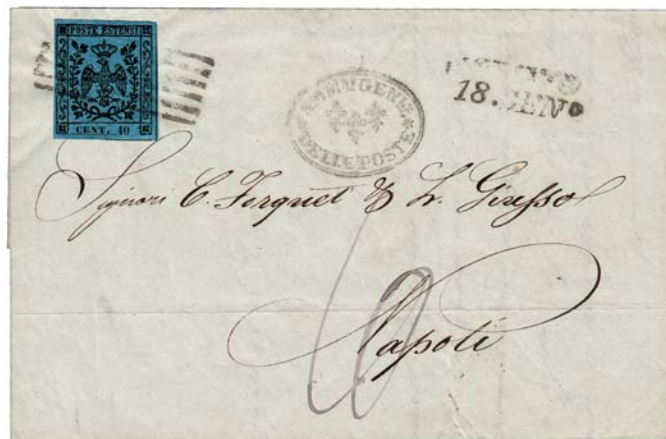 POSTE ESTENSI
CENT. 40
AMM GENLE
DELLE POSTE
18. GENO
Signori C. Forquet & L. Giusso
Napoli